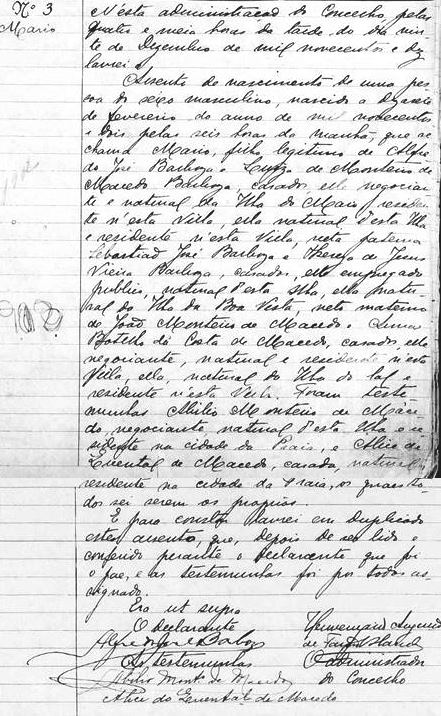 Nº 3
Mario
N'esta administracao do Concelho, pelas
quatro e meia horas da tarde, do dia vin-
te de Dezembro de mil novecentos e dez
lavrei o
Assento de nascimento de uma pes-
soa do sexo masculino, nascido a dezaseis
de fevereiro do anno de mil novecentos
e dois pelas seis horas da manhã, que se
chama Mario, filho legitimo de Alfre-
do José Barboza e Monteiro de
Macedo Barboza, casados, elle negocian-
te e natural da Ilha do Maio, residen-
te n'esta Villa, ella natural d'esta Ilha
e residente n'esta Villa, neto paterno
Sebastião José Barboza e Thereza de Jesus
Vieira Barboza, casados, elle empregado
publico, natural d'esta Ilha, ella natu-
ral da Ilha da Boa Vista, neto materno
de João Monteiro de Macedo e Anna
Botelho da Costa de Macedo, casados, elle
negociante, natural e residente n'esta
Villa, ella, natural da Ilha do Sal e
residente n'esta Villa. Foram teste-
munhas Abilio Monteiro de Mace-
do, negociante natural d'esta Ilha e re-
sidente na cidade da Praia, e Alice de
Quental de Macedo, casada, natural e
residente na cidade da Praia, os quaes to-
dos sei serem os proprios.
E para constar lavrei em duplicado
este assento, que, depois de ser lido e
conferido perante o declarante que foi
o pae, e as testemunhas foi por todos as-
signado.
Era ut supra
O declarante
Alfredo José Barboza
As testemunhas
Abilio Montº de Macedo
Alice do Quental de Macedo
O administrador
do Concelho